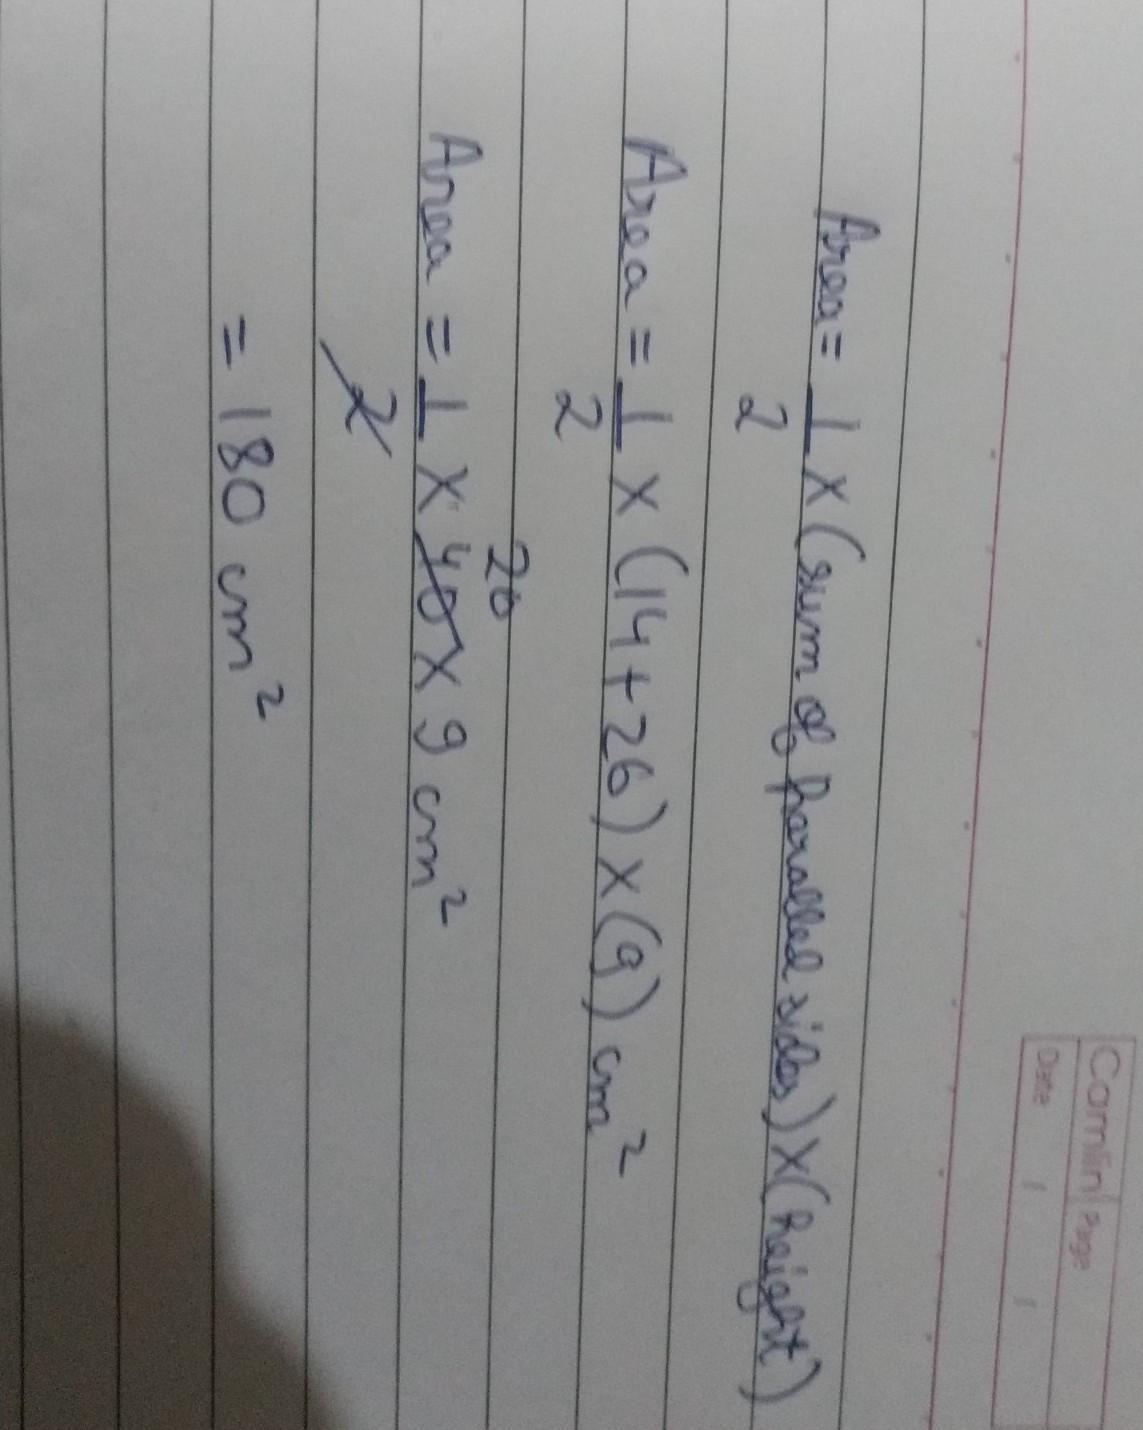 Camlin Page
Date / /
Area = 1/2 × (sum of parallel sides) × (height)
Area = 1/2 × (14 + 26) × (9) cm²
20
Area = 1/2 × 40 × 9 cm²
= 180 cm²